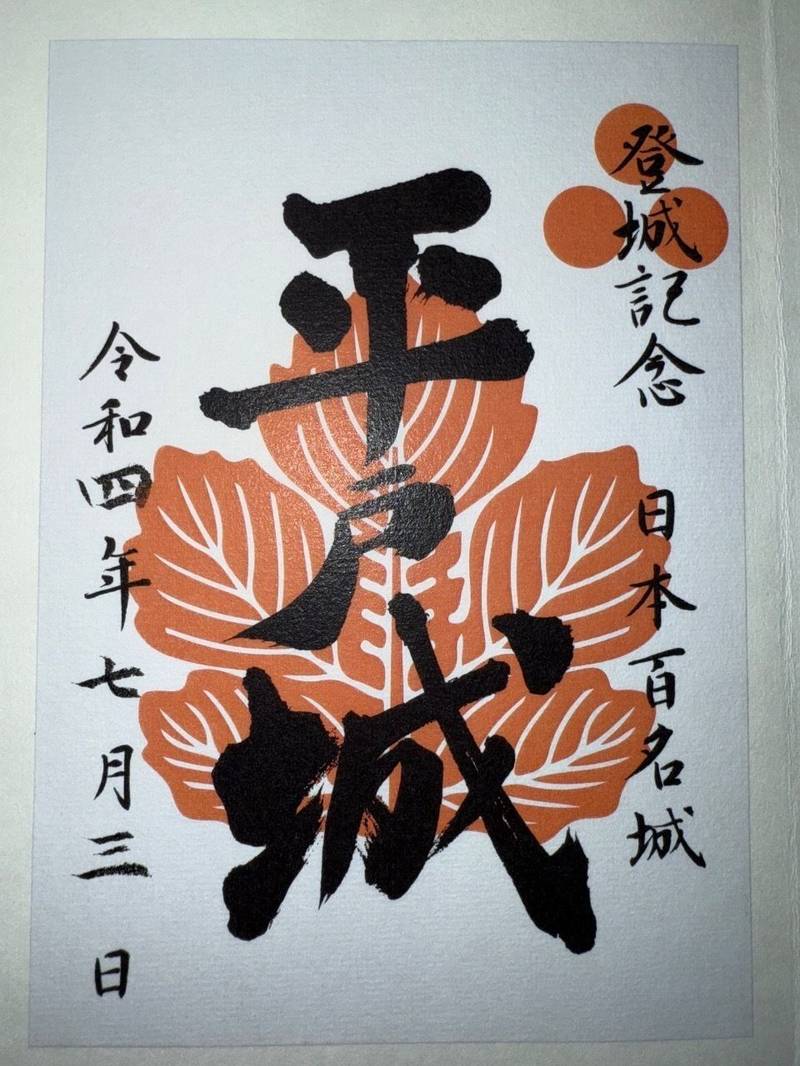 登城記念
日本百名城
平戸城
令和四年七月三日